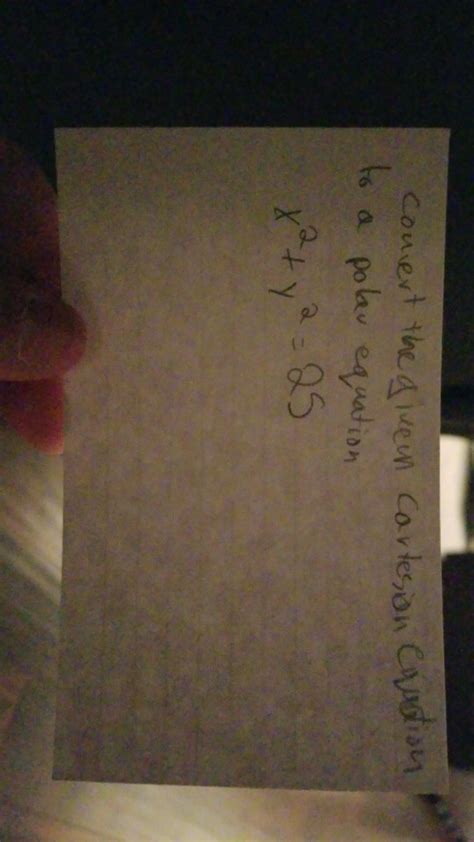 convert the given cartesian equation
to a polar equation
x² + y² = 25